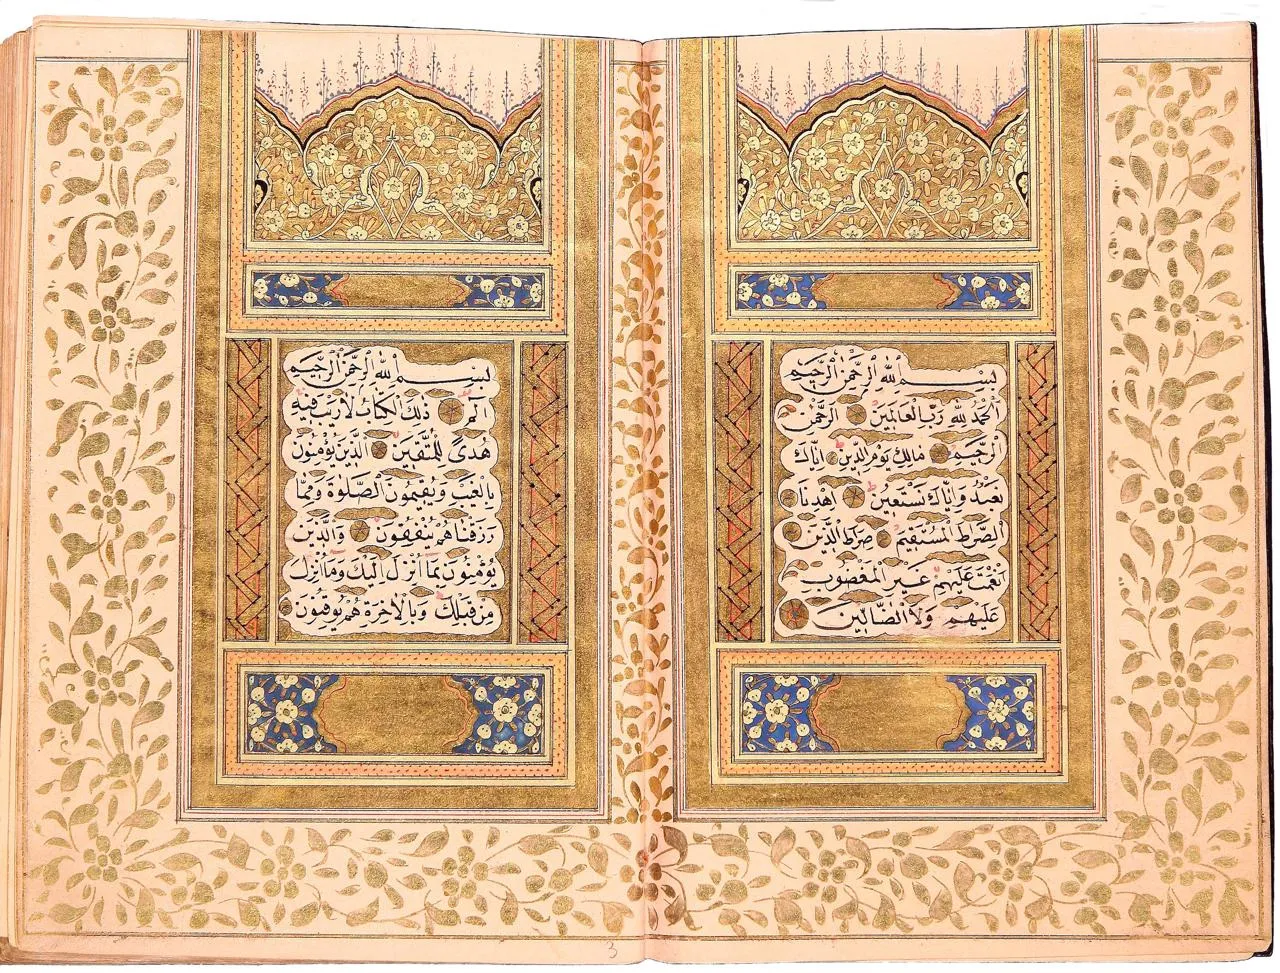 بِسْمِ اللّٰهِ الرَّحْمٰنِ الرَّحِيمِ
اَلْحَمْدُ لِلّٰهِ رَبِّ الْعَالَمِينَ الرَّحْمٰنِ
الرَّحِيمِ مَالِكِ يَوْمِ الدِّينِ اِيَّاكَ
نَعْبُدُ وَاِيَّاكَ نَسْتَعِينُ اِهْدِنَا
الصِّرَاطَ الْمُسْتَقِيمَ صِرَاطَ الَّذِينَ
اَنْعَمْتَ عَلَيْهِمْ غَيْرِ الْمَغْضُوبِ
عَلَيْهِمْ وَلَا الضَّالِّينَ
بِسْمِ اللّٰهِ الرَّحْمٰنِ الرَّحِيمِ
الٓمٓ ذٰلِكَ الْكِتَابُ لَا رَيْبَ فِيهِ
هُدًى لِلْمُتَّقِينَ الَّذِينَ يُؤْمِنُونَ
بِالْغَيْبِ وَيُقِيمُونَ الصَّلٰوةَ وَمِمَّا
رَزَقْنَاهُمْ يُنْفِقُونَ وَالَّذِينَ
يُؤْمِنُونَ بِمَا اُنْزِلَ اِلَيْكَ وَمَا اُنْزِلَ
مِنْ قَبْلِكَ وَبِالْاٰخِرَةِ هُمْ يُوقِنُونَ
3